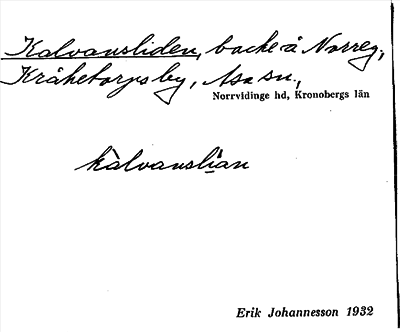 Kalvansliden, backe å Norreg,
Kråketorps by, Asa sn.,
Norrvidinge hd, Kronobergs län
kàlvanslian
Erik Johannesson 1932